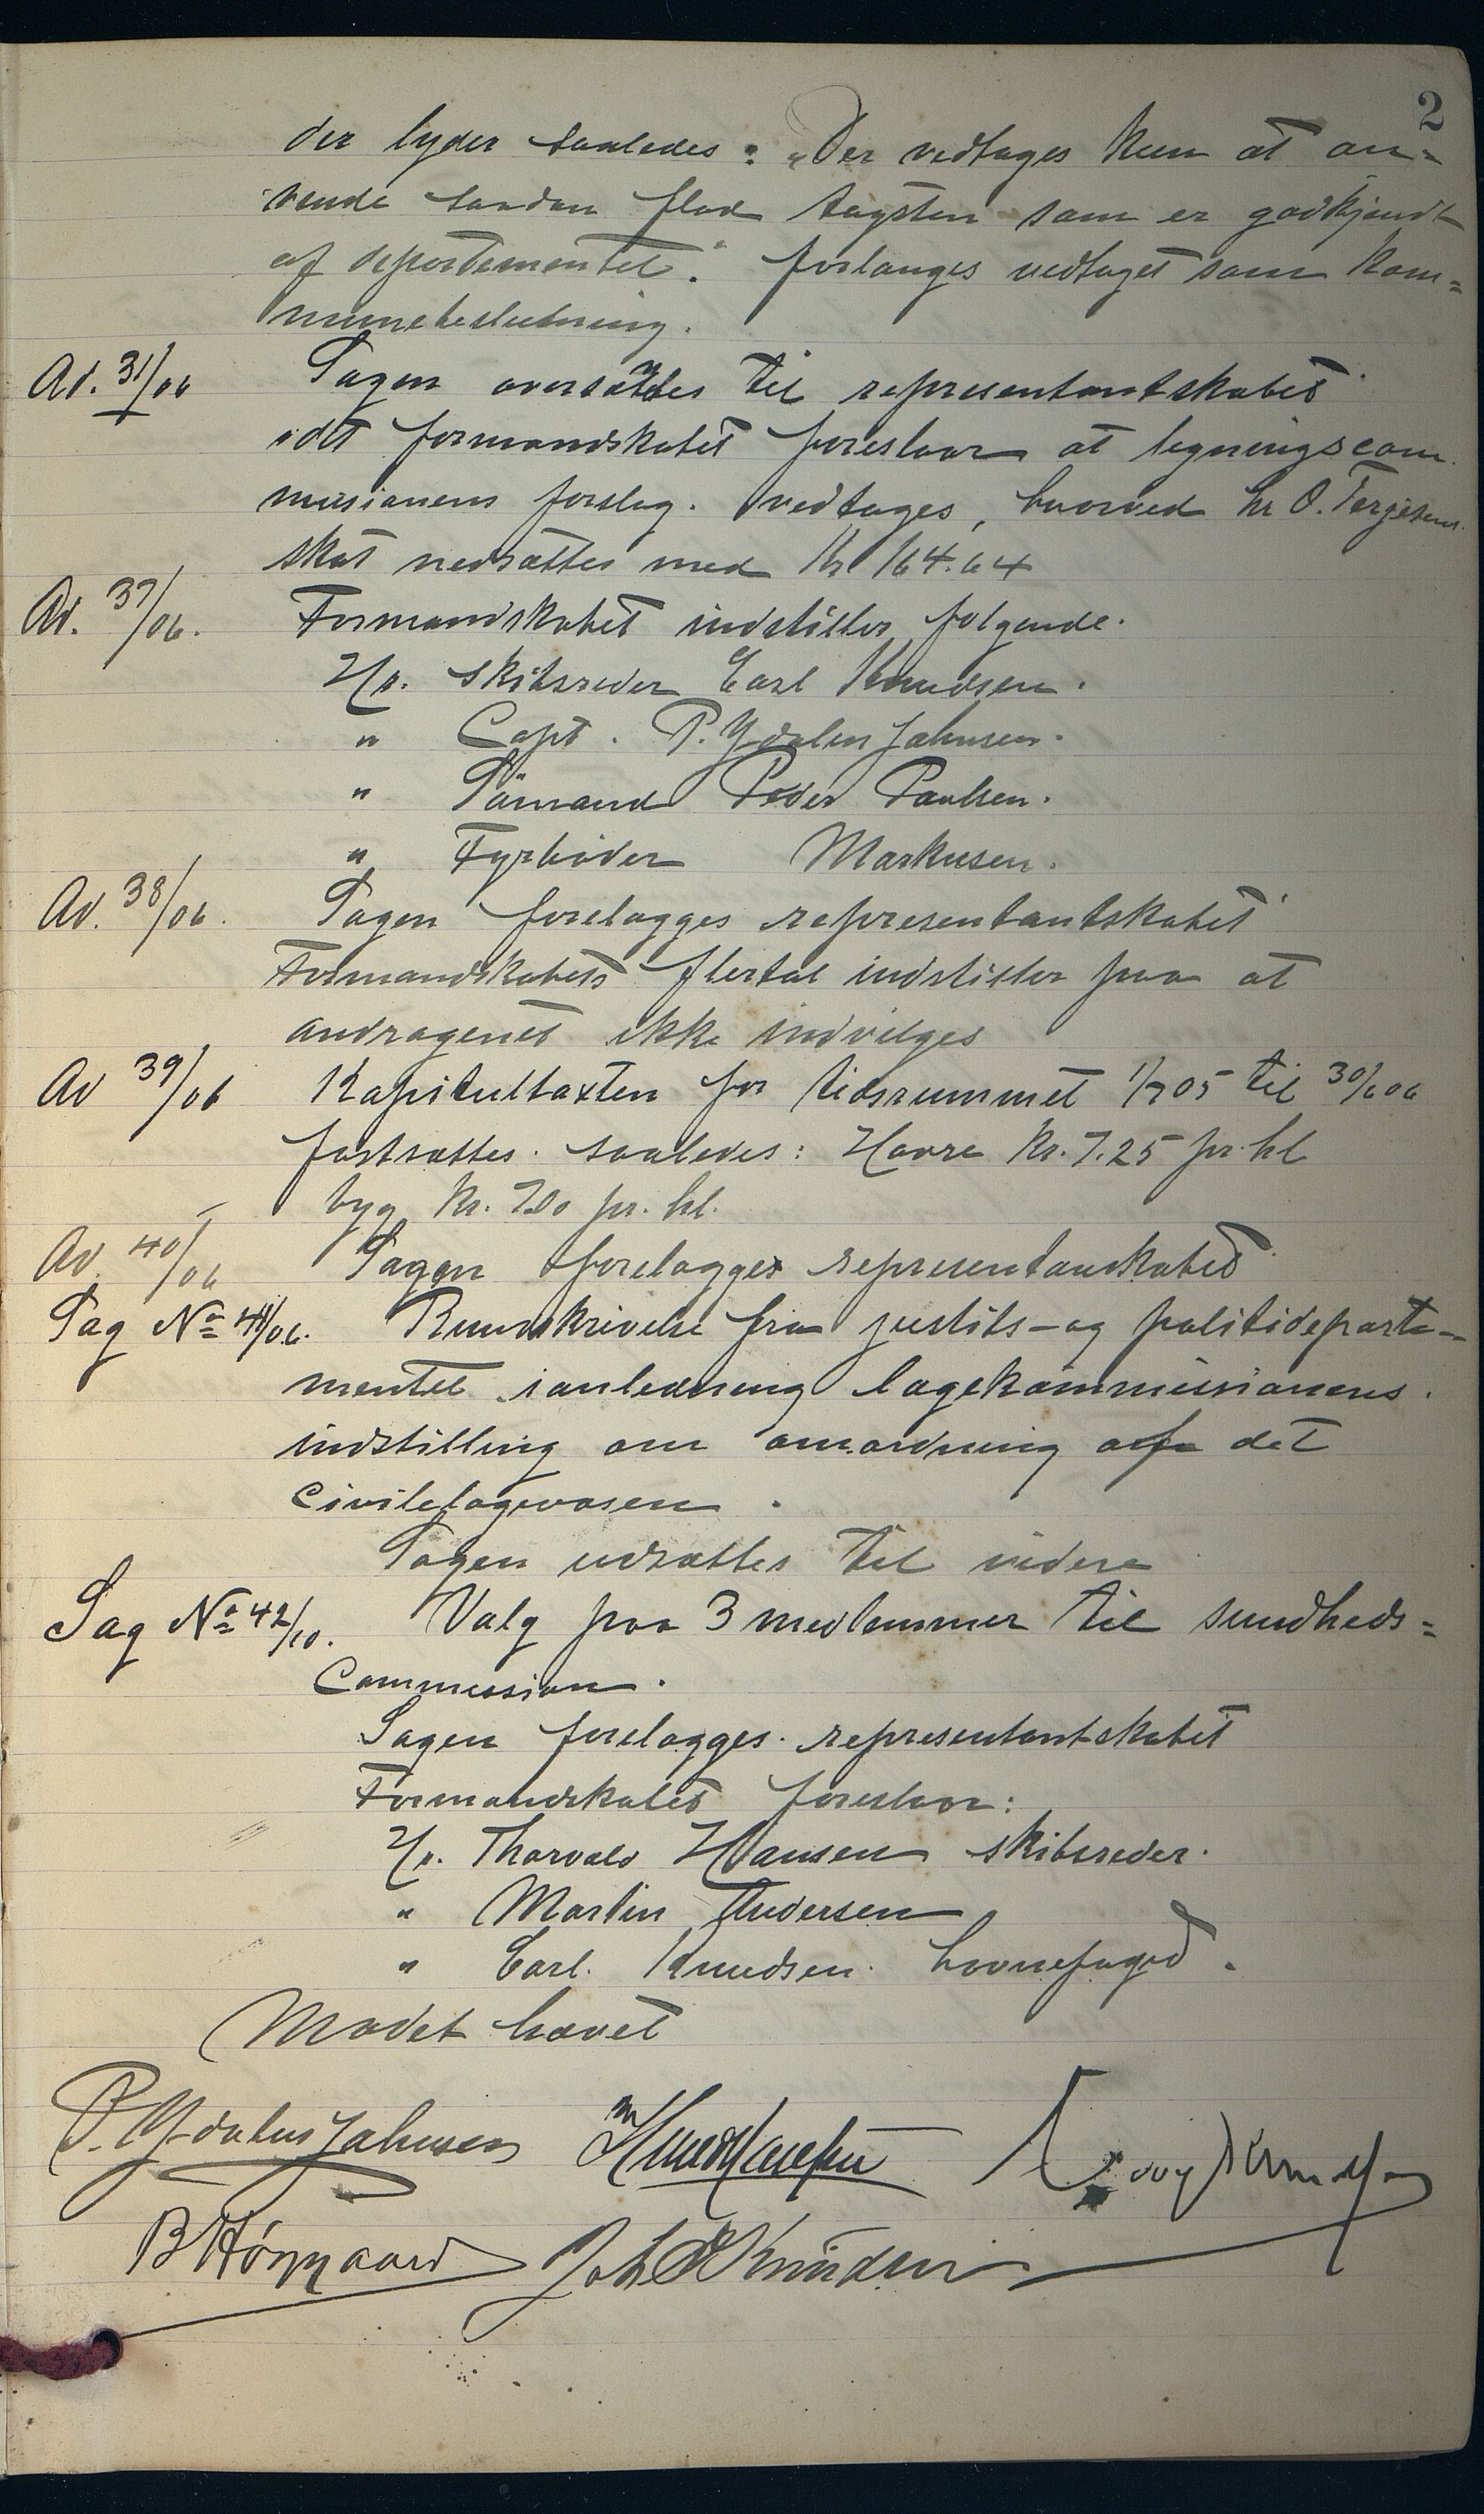 2
der lyder saaledes: "Der vedtages kun at an=
vende saadan flad tagsten som er godkjendt
af departementet." forlanges vedtaget som kom=
munebeslutning.
Ad. 31/06 Sagen oversættes til representantskabet
idet formandskabet foreslaar at ligningscom
missionens forslag. vedtages, hvorved hr O. Terjesens
skat nedsættes med Kr 164.64
Ad. 37/06. Formandskabet indstiller følgende.
Hr. Skibsreder Carl Knudsen.
" Capt. P. Ydalus Jahnsen.
" Sömand Peder Paulsen.
" Fyrbøder Markusen.
Ad. 38/06. Sagen forelægges representantskabet
Formandskabets flertal indstiller paa at
andragenet ikke indvilges
Ad 39/06 Kapiteltaxten for tidsrummet 1/7 05 til 30/6 06
fastsættes. saaledes: Havre Kr. 7.25 pr. hl
byg Kr. 7.00 pr. hl.
Ad. 40/06 Sagen forelægges representanskabet
Sag No 41/06. Rundskrivelse fra justits- og politideparte-
mentet ianledning lægekommissionens.
indstilling om omordning af det
civilelægevæsen.
Sagen udsættes til videre
Sag No 42/10. Valg paa 3 medlemmer til sundheds=
Commission.
Sagen forelægges. representantskabet
Formandskabet foreslaar:
Hr. Thorvald Hansen skibsreder.
" Martin Andersen
" Carl. Knudsen. havnefoged.
Mødet hævet
P. Ydalus Jahnsen
B Hörgaard Joh Knudsen